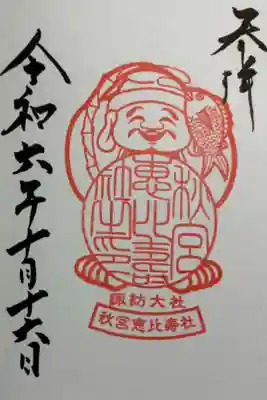 奉拝
秋宮
惠比壽
社之印
諏訪大社
秋宮恵比壽社
令和六年十月十六日